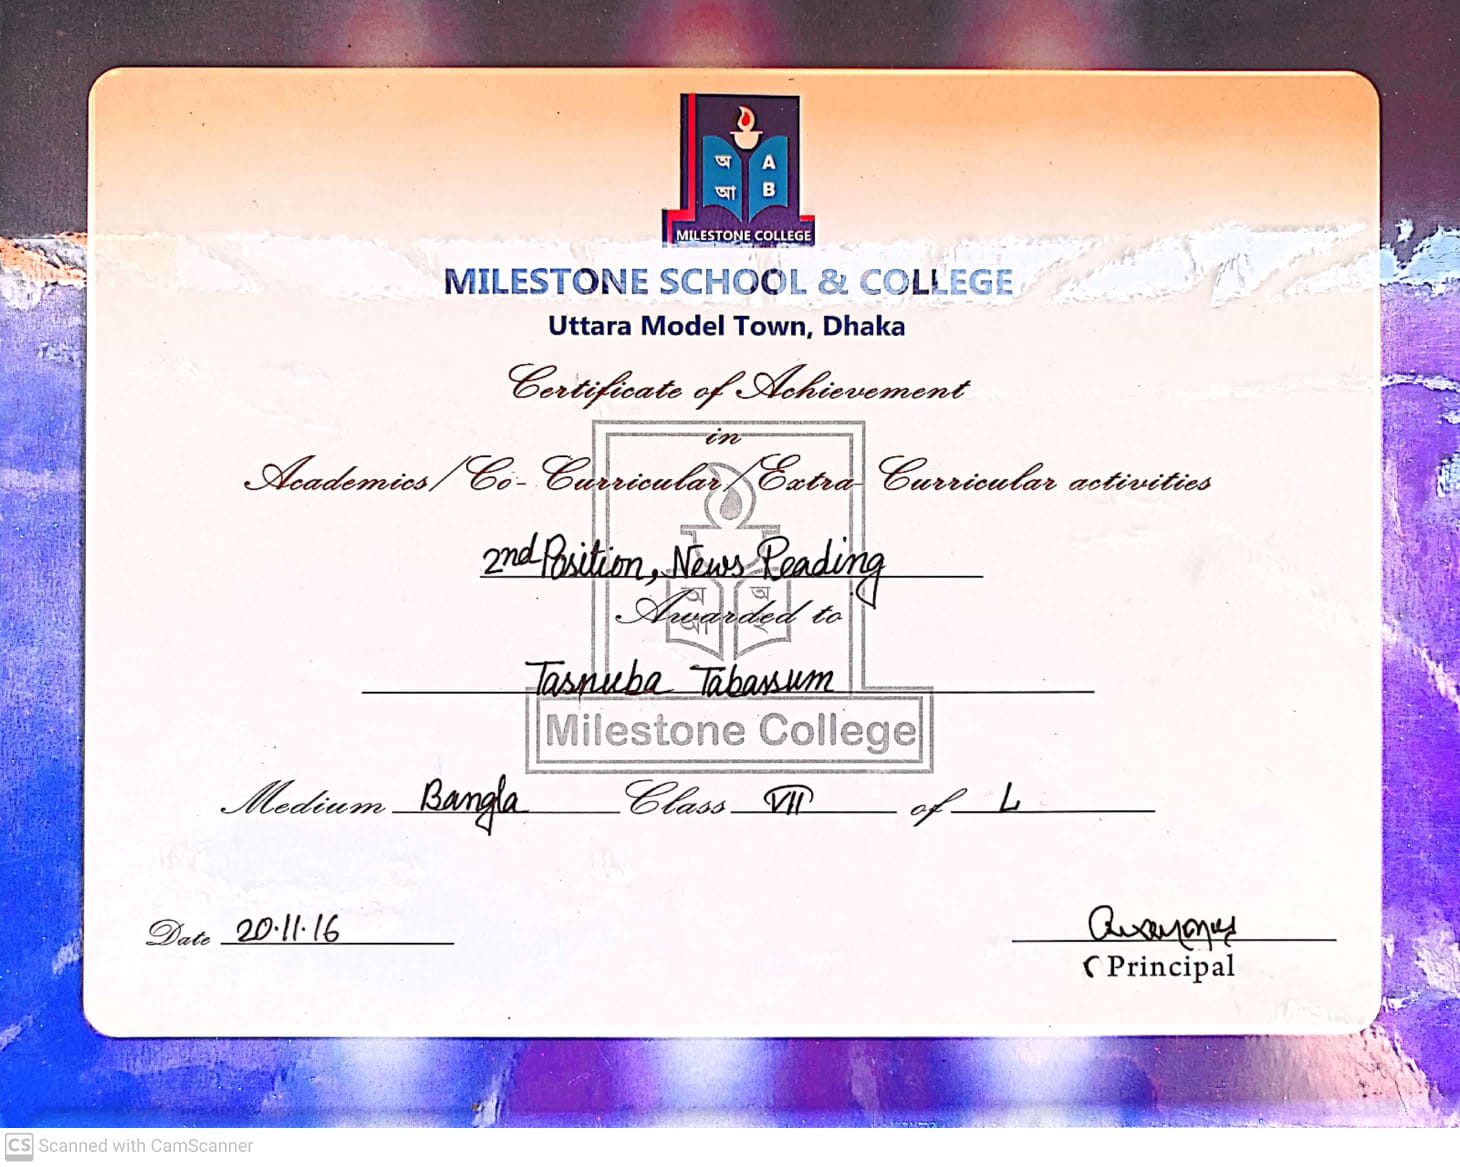 অ A
আ B
MILESTONE COLLEGE
MILESTONE SCHOOL & COLLEGE
Uttara Model Town, Dhaka
Certificate of Achievement
in
Academics/Co-Curricular/Extra-Curricular activities
2nd Position, News Reading
অ অ
আ
Awarded to
Tasnuba Tabassum
Milestone College
Medium Bangla Class VII of L
Date 20.11.16
Principal
CS Scanned with CamScanner